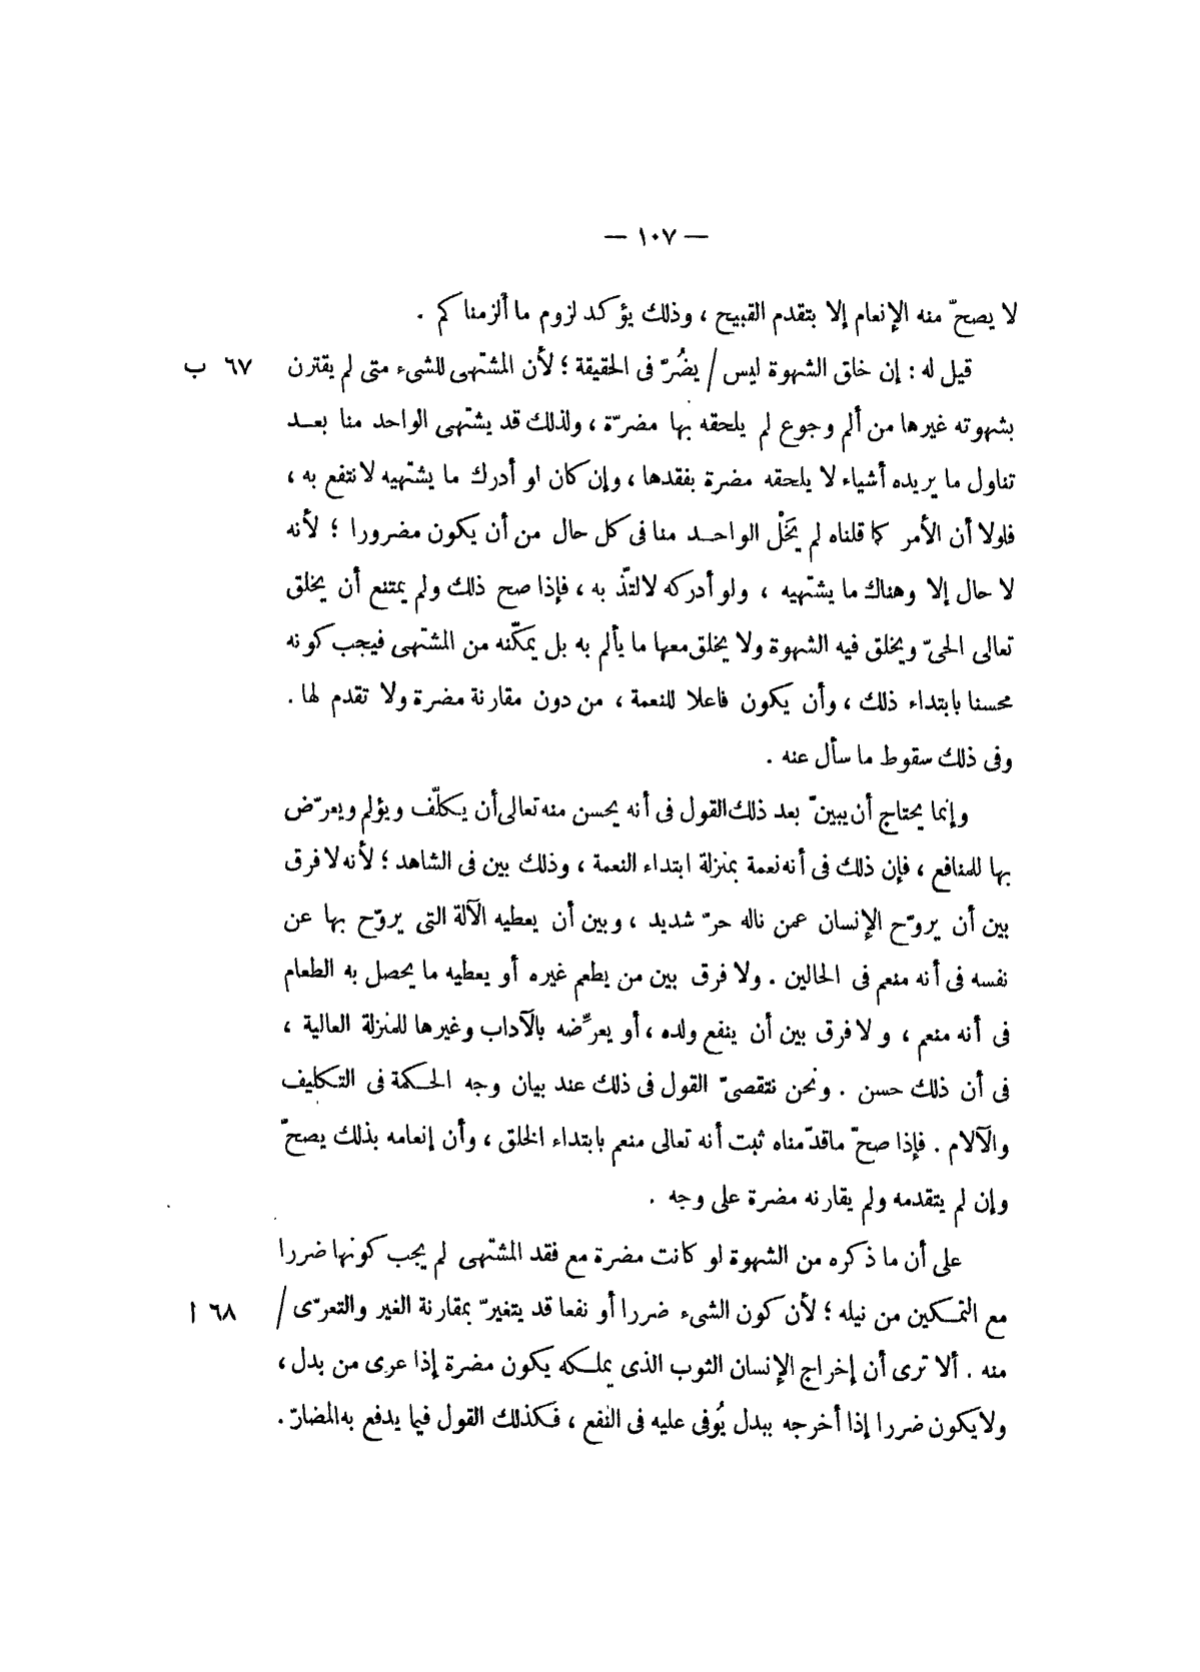 — ١٠٧ —
لا يصحّ منه الإنعام إلا بتقدم القبيح ، وذلك يؤكد لزوم ما ألزمناكم .
قيل له : إن خلق الشهوة ليس / يضُرّ فى الحقيقة ؛ لأن المشتهى للشىء متى لم يقترن ٦٧ ب
بشهوته غيرها من ألم وجوع لم يلحقه بها مضرّة ، ولذلك قد يشتهى الواحد منا بعد
تناول ما يريده أشياء لا يلحقه مضرة بفقدها ، وإن كان او أدرك ما يشتهيه لانتفع به ،
فلولا أن الأمر كما قلناه لم يَخْل الواحد منا فى كل حال من أن يكون مضرورا ؛ لأنه
لا حال إلا وهناك ما يشتهيه ، ولو أدركه لالتذّ به ، فإذا صح ذلك ولم يمتنع أن يخلق
تعالى الحىّ ويخلق فيه الشهوة ولا يخلق معها ما يألم به بل يمكّنه من المشتهى فيجب كونه
محسنا بابتداء ذلك ، وأن يكون فاعلا للنعمة ، من دون مقارنة مضرة ولا تقدم لها .
وفى ذلك سقوط ما سأل عنه .
وإنما يحتاج أن يبينّ بعد ذلك القول فى أنه يحسن منه تعالى أن يكلّف ويؤلم ويعرّض
بها للمنافع ، فإن ذلك فى أنه نعمة بمنزلة ابتداء النعمة ، وذلك بين فى الشاهد ؛ لأنه لا فرق
بين أن يروّح الإنسان عمن ناله حرّ شديد ، وبين أن يعطيه الآلة التى يروّح بها عن
نفسه فى أنه منعم فى الحالين . ولا فرق بين من يطعم غيره أو يعطيه ما يحصل به الطعام
فى أنه منعم ، ولا فرق بين أن ينفع ولده ، أو يعرِّضه بالآداب وغيرها للمنزلة العالية ،
فى أن ذلك حسن . ونحن نتقصىّ القول فى ذلك عند بيان وجه الحكمة فى التكليف
والآلام . فإذا صحّ ماقدّمناه ثبت أنه تعالى منعم بابتداء الخلق ، وأن إنعامه بذلك يصحّ
وإن لم يتقدمه ولم يقارنه مضرة على وجه .
على أن ما ذكره من الشهوة لو كانت مضرة مع فقد المشتهى لم يجب كونها ضررا
مع التمكين من نيله ؛ لأن كون الشىء ضررا أو نفعا قد يتغيرّ بمقارنة الغير والتعرّى / ٦٨ ا
منه . ألا ترى أن إخراج الإنسان الثوب الذى يملكه يكون مضرة إذا عرى من بدل ،
ولايكون ضررا إذا أخرجه ببدل يُوفى عليه فى النفع ، فكذلك القول فيما يدفع به المضارّ .